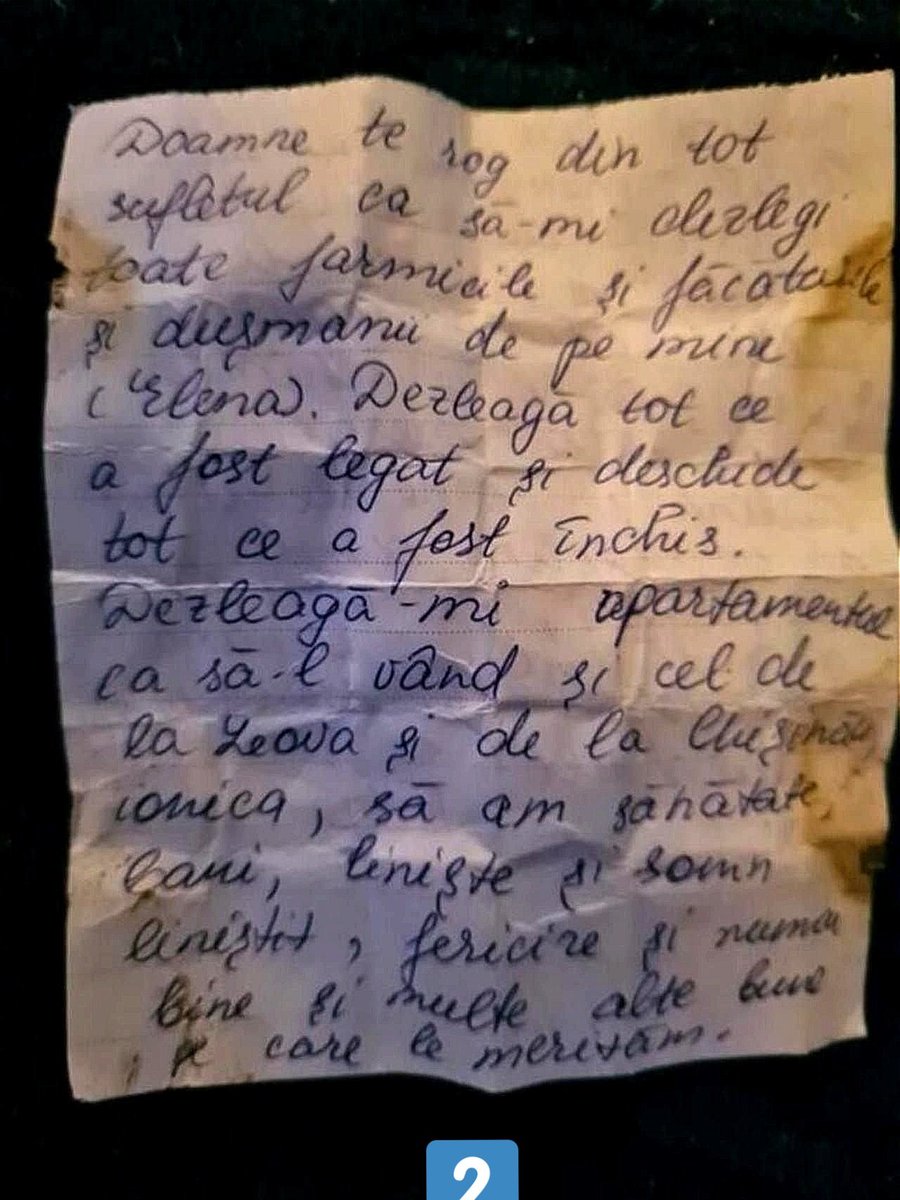 Doamne te rog din tot
sufletul ca să-mi dezlegi
toate farmicile și făcăturile
și dușmanii de pe mine
(Elena). Dezleagă tot ce
a fost legat și deschide
tot ce a fost închis.
Dezleagă-mi apartamentul
ca să-l vând și cel de
la Leova și de la Chișinău,
ionica, să am sănătate,
bani, liniște și somn
liniștit, fericire și numai
bine și multe alte bune
pe care le merităm.
2